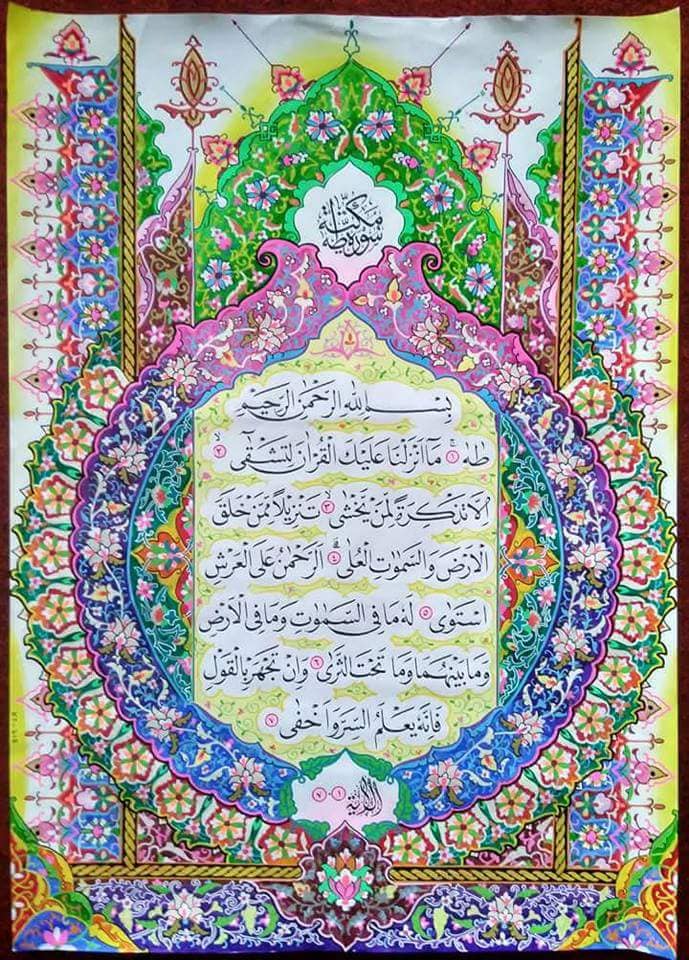 سُورَةُ طٰهٰ
مَكِّيَّةٌ
بِسْمِ اللهِ الرَّحْمٰنِ الرَّحِيْمِ
طٰهٰ ۚ ۝١ مَآ اَنْزَلْنَا عَلَيْكَ الْقُرْاٰنَ لِتَشْقٰٓى ۙ ۝٢
اِلَّا تَذْكِرَةً لِّمَنْ يَّخْشٰى ۙ ۝٣ تَنْزِيْلًا مِّمَّنْ خَلَقَ
الْاَرْضَ وَالسَّمٰوٰتِ الْعُلٰى ۗ ۝٤ اَلرَّحْمٰنُ عَلَى الْعَرْشِ
اسْتَوٰى ۝٥ لَهٗ مَا فِى السَّمٰوٰتِ وَمَا فِى الْاَرْضِ
وَمَا بَيْنَهُمَا وَمَا تَحْتَ الثَّرٰى ۝٦ وَاِنْ تَجْهَرْ بِالْقَوْلِ
فَاِنَّهٗ يَعْلَمُ السِّرَّ وَاَخْفٰى ۝٧
الْاٰيَة ١-٧